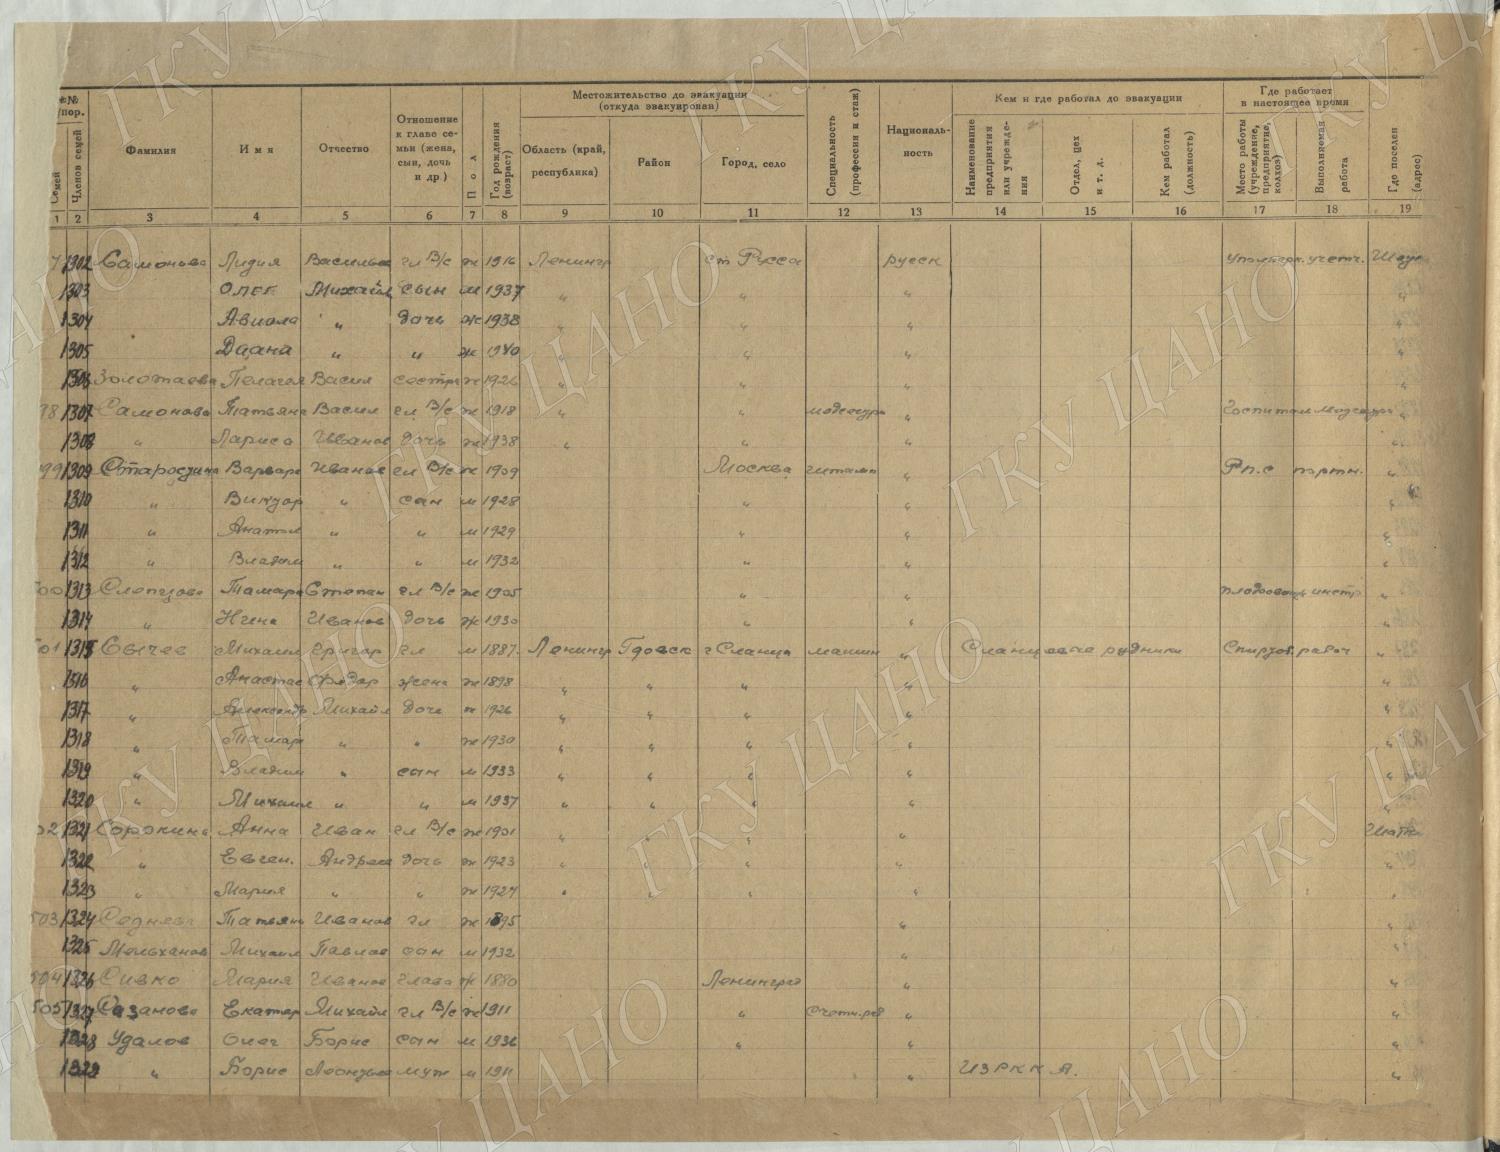 №№ пор. Местожительство до эвакуации (откуда эвакуирован) Кем и где работал до эвакуации Где работает в настоящее время
Семей Членов семей Фамилия Имя Отчество Отношение к главе семьи (жена, сын, дочь и др.) Пол Год рождения (возраст) Область (край, республика) Район Город, село Специальность (профессия и стаж) Националь-ность Наименование предприятия или учрежде-ния Отдел, цех и т. д. Кем работал (должность) Место работы (учреждение, предприятие, колхоз) Выполняемая работа Где поселен (адрес)
1 2 3 4 5 6 7 8 9 10 11 12 13 14 15 16 17 18 19
1302 Самонова Лидия Василье гл В/с ж 1916 Ленингр ст Русса русск учетч.
1303 Олег Михайл сын м 1937 " " " "
1304 Авиола " дочь ж 1938 " " " "
1305 Диана " " ж 1940 " " " "
1306 Золотаева Пелагея Васил сестра ж 1926 " " " "
98 1307 Самонова Татьяна Васил гл В/с ж 1918 " " медсестра " Госпитал медсестра "
1308 " Лариса Иванов дочь ж 1938 " " " "
99 1309 Старостина Варвара Иванов гл В/с ж 1909 Москва " Рп.с портн. "
1310 " Виктор " сын м 1928 " " "
1311 " Анатол " " м 1929 " " "
1312 " Владим " " м 1932 " " "
500 1313 Слепцова Тамара Степан гл В/с ж 1905 " " инстр "
1314 " Нина Иванов дочь ж 1930 " " "
501 1315 Сычев Михаил Григор гл м 1887. Ленингр Гдовск г Сланцы машин " Сланцевые рудники Спиртов. рабоч "
1316 " Анастас Федор жена ж 1898 " " " " "
1317 " Александр Михайл доч ж 1926 " " " " "
1318 " Тамар " " ж 1930 " " " " "
1319 " Владим " сын м 1933 " " " " "
1320 " Михаил " " м 1937 " " " " "
502 1321 Сорокина Анна Иван гл В/с ж 1901 " " " " Шатки
1322 " Евген. Андрее дочь ж 1923 " " " " "
1323 " Мария " " ж 1927 " " " " "
503 1324 Седнева Татьяна Иванов гл ж 1895 " "
1325 Мельханов Михаил Павлов сын м 1932 " "
504 1326 Сивко Мария Иванов глава ж 1880 Ленинград " "
505 1327 Сазанова Екатер Михайл гл В/с ж 1911 " счетн.раб " "
1328 Удалов Олег Борис сын м 1936 " " "
1329 " Борис Леонтьев муж м 1911 " ИЗ РККА. "
ГКУ ЦАНО